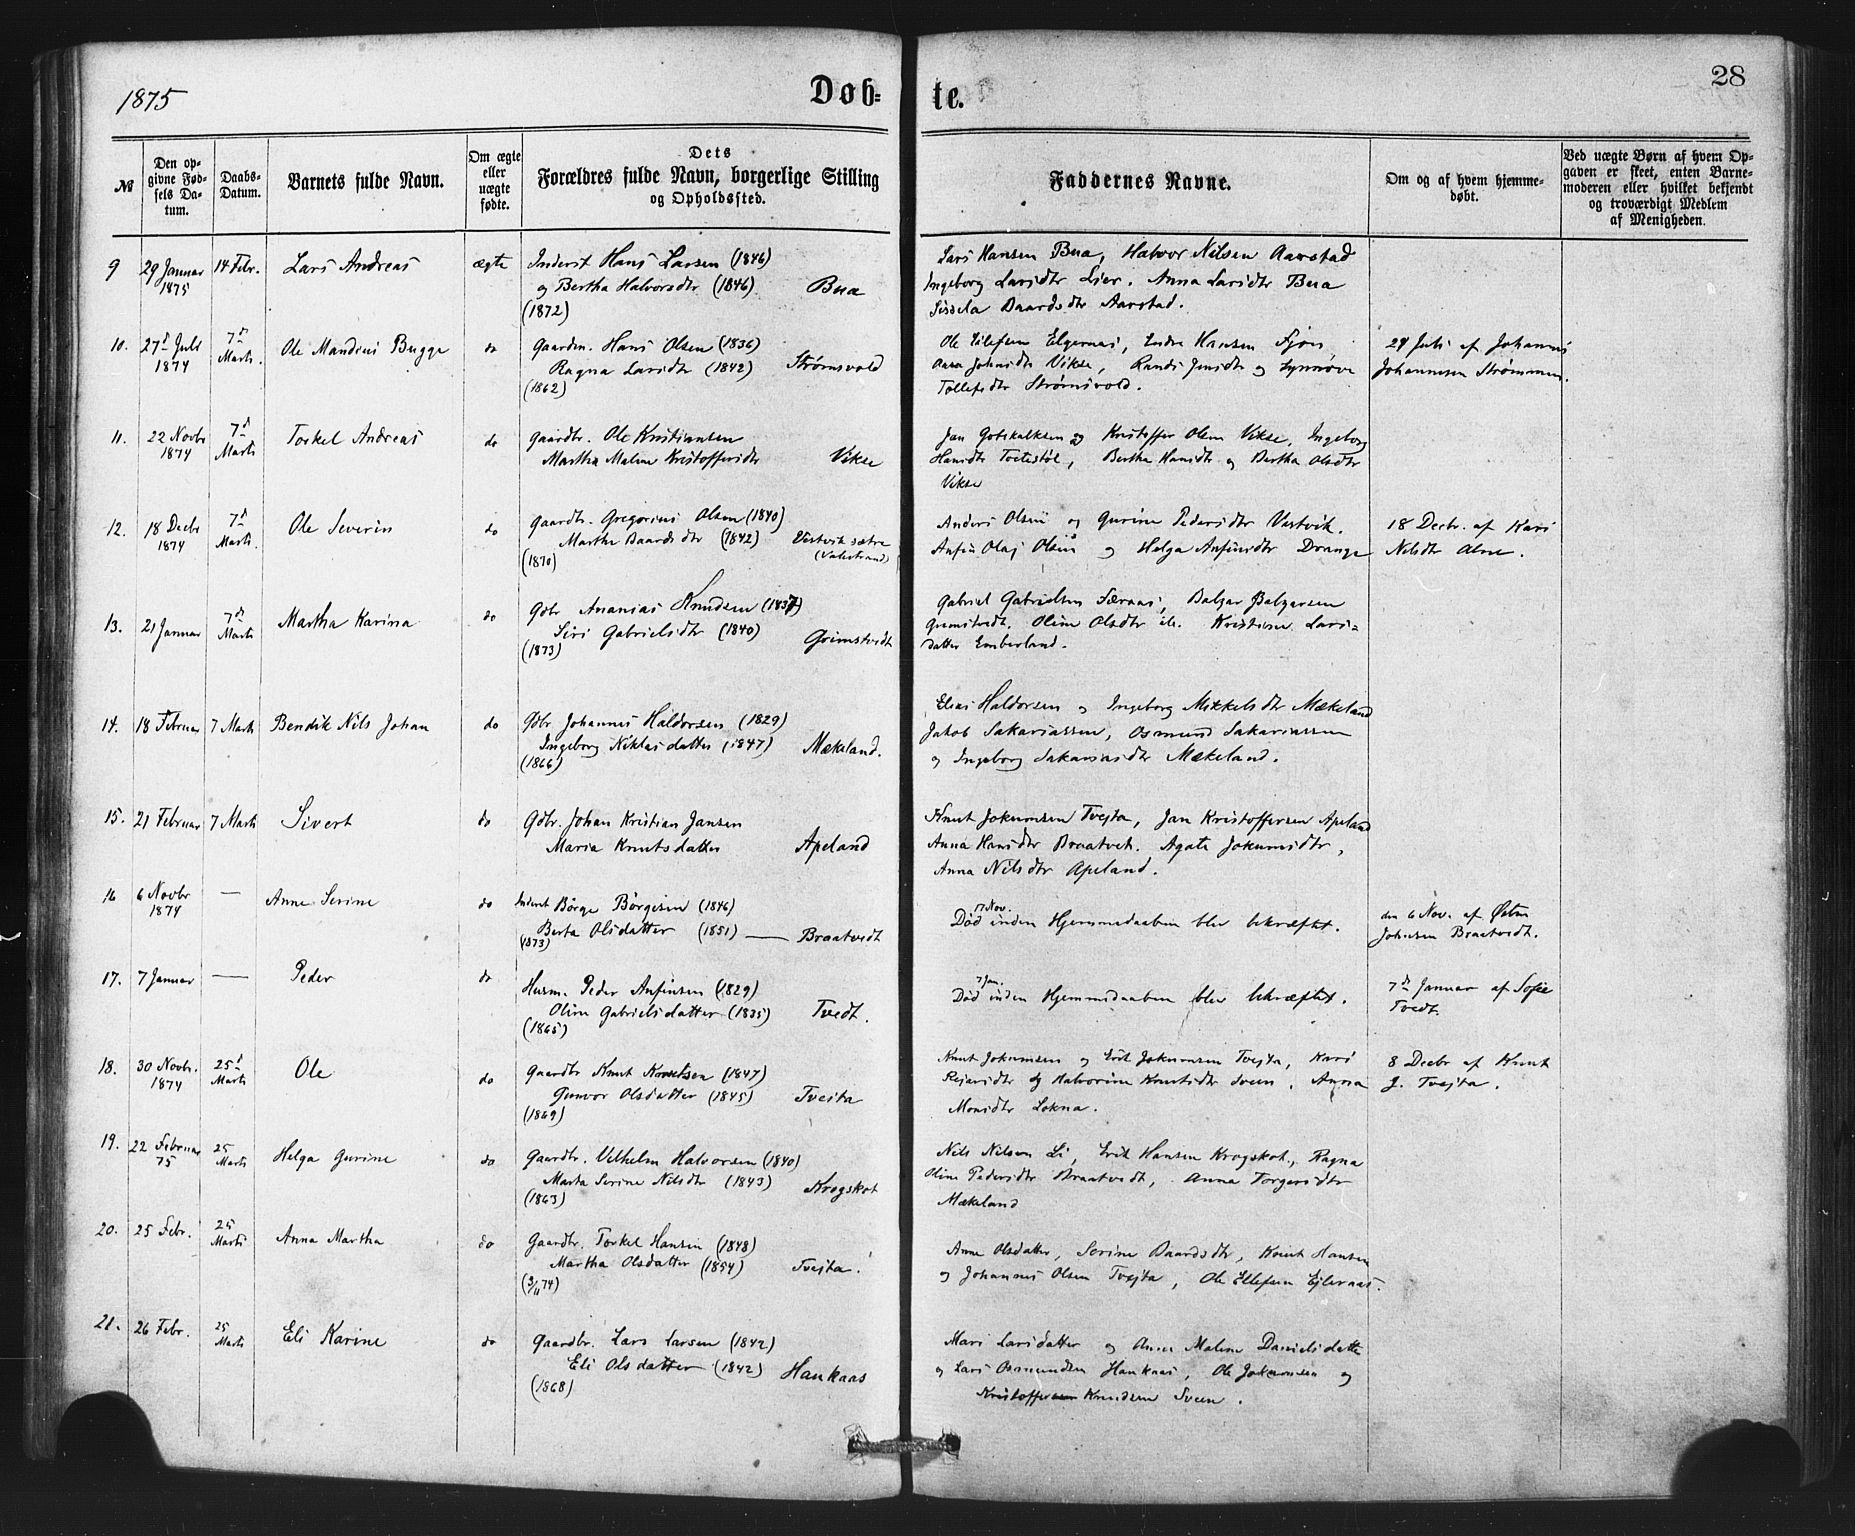 1875
Døb=
te.
28
№
Den op-
givne Fød-
sels Da-
tum.
Daabs-
Datum.
Barnets fulde Navn.
Om ægte
eller
uægte
fødte.
Dets
Forældres fulde Navn, borgerlige Stilling
og Opholdssted.
Faddernes Navne.
Om og af hvem hjemme-
døbt.
Ved uægte Børn af hvem Op-
gaven er skeet, enten Barne-
moderen eller hvilket bekjendt
og troværdigt Medlem
af Menigheden.
9 29 Januar 14 Febr. Lars Andreas ægte Inderst Hans Larsen (1846)
1875 og Bertha Halvorsdtr (1846) Bua
(1872)
Lars Hansen Bua, Halvor Nilsen Aarstad
Ingeborg Larsdtr Lier. Anna Larsdtr Bua
Sissela Baardsdtr Aarstad.
10. 27d Juli 7d Ole Mandius Bugge do Gaardm. Hans Olsen (1836)
1874 Marts. Ragna Larsdtr (1842) Strømsvold
(1862)
Ole Ellefsen Elgernas, Endre Hansen
Johnsdtr Vikse, Randi og Synnøve
Tollefsdtr Strømsvold.
29 Juli af Johannes
Johannesen Strømmen.
11. 22 Novbr 7d Torkel Andreas do Gaardbr. Ole Kristiansen
1874 Marts Martha Malene Kristoffersdtr Vikse
Jan Gotskalksen og Kristoffer Olsen Vikse, Ingeborg
Hansdtr, Bertha Hansdtr og Bertha Olsdtr
Vikse
12. 18 Decbr 7d Ole Severin do Gaardbr. Gregorius Olsen (1840)
1874 Marts. Martha Baardsdtr (1842) Vestvik sætre
(1870) (Valestrand)
Anders Olsen og Gurine Pedersdtr Vestvik.
Anfin Olaj Olsen og Helga Anfinsdtr Drange
18 Decbr. af Kari
Nilsdtr Alne.
13. 21 Januar 7d Martha Karina do Gdbr Ananias Knudsen (1837)
Marts Siri Gabrielsdtr (1840) Grimstvedt
(1873)
Gabriel Gabrielsen, Balzar Balzarsen
Grimstvedt. Oline Olsdtr ib. Kristiane Lars=
datter Emberland.
14. 18 Februar 7 Marts Bendik Nils Johan do Gdbr Johannes Haldorsen (1829)
Ingeborg Niklasdatter (1847) Mækeland.
(1866)
Elias Haldorsen og Ingeborg Mikkelsdtr Mækeland
Jakob Sakariassen, Osmund Sakariassen
og Ingeborg Sakariasdtr Mækeland.
15. 21 Februar 7 Marts Sivert do Gdbr. Johan Kristian Jansen
Maria Knutsdatter Apeland
Knut Jokumsen Tvejta, Jan Kristoffersen Apeland
Anna Hansdtr Braatvet. Agate Jokumsdtr,
Anna Nilsdtr Apeland.
16 6 Novbr — Anne Serine do Inderst Børge Børgesen (1846)
1874 Berta Olsdatter (1851) — Braatvedt
(1873)
17 Nov.
Død inden Hjemmedaaben blev bekræftet.
den 6 Nov. af Østen
Johnsen Braatvedt.
17. 7 Januar — Peder do Husm. Peder Anfinsen (1829)
Oline Gabrielsdatter (1835) Tvedt.
(1865)
7 Jan.
Død inden Hjemmedaaben blev bekræftet.
7d Januar af Sofie
Tvedt.
18. 30 Novbr. 25d Ole do Gaardbr Knut Knutsen (1847)
1874 Marts Gunvor Olsdatter (1845) Tveita
(1869)
Knut Jokumsen og Erik Jokumsen Tvejta, Kari
Reiersdtr og Halvorine Knutsdtr Sveen. Anna
Monsdtr Lokna.
8 Decbr af Knut
J. Tvejta.
19. 22 Februar 25 Helga Gurine do Gaardbr. Vilhelm Halvorsen (1840)
75 Marts Marta Serine Nilsdtr (1843) Krogskot
(1863)
Nils Nilsen Li, Erik Hansen Krogskot, Ragna
Oline Pedersdtr Braatvedt, Anna Torgersdtr
Mækeland
20. 25 Febr. 25 Anna Martha do Gaardbr. Torkel Hansen (1848)
Marts Martha Olsdatter (1854) Tvejta.
(3/11 74)
Anne Olsdatter, Serine Baardsdtr, Knut Hansen
og Johannes Olsen Tvejta, Ole Ellefsen Ejlernas.
21. 26 Febr. 25 Eli Karine do Gaardbr. Lars Larsen (1842)
Marts Eli Olsdatter (1842) Haukaas
(1868)
Mari Larsdatter og Anne Malene Danielsdatter
og Lars Osmundsen Haukaas, Ole Jokumsen og
Kristoffersen Knudsen Sveen.